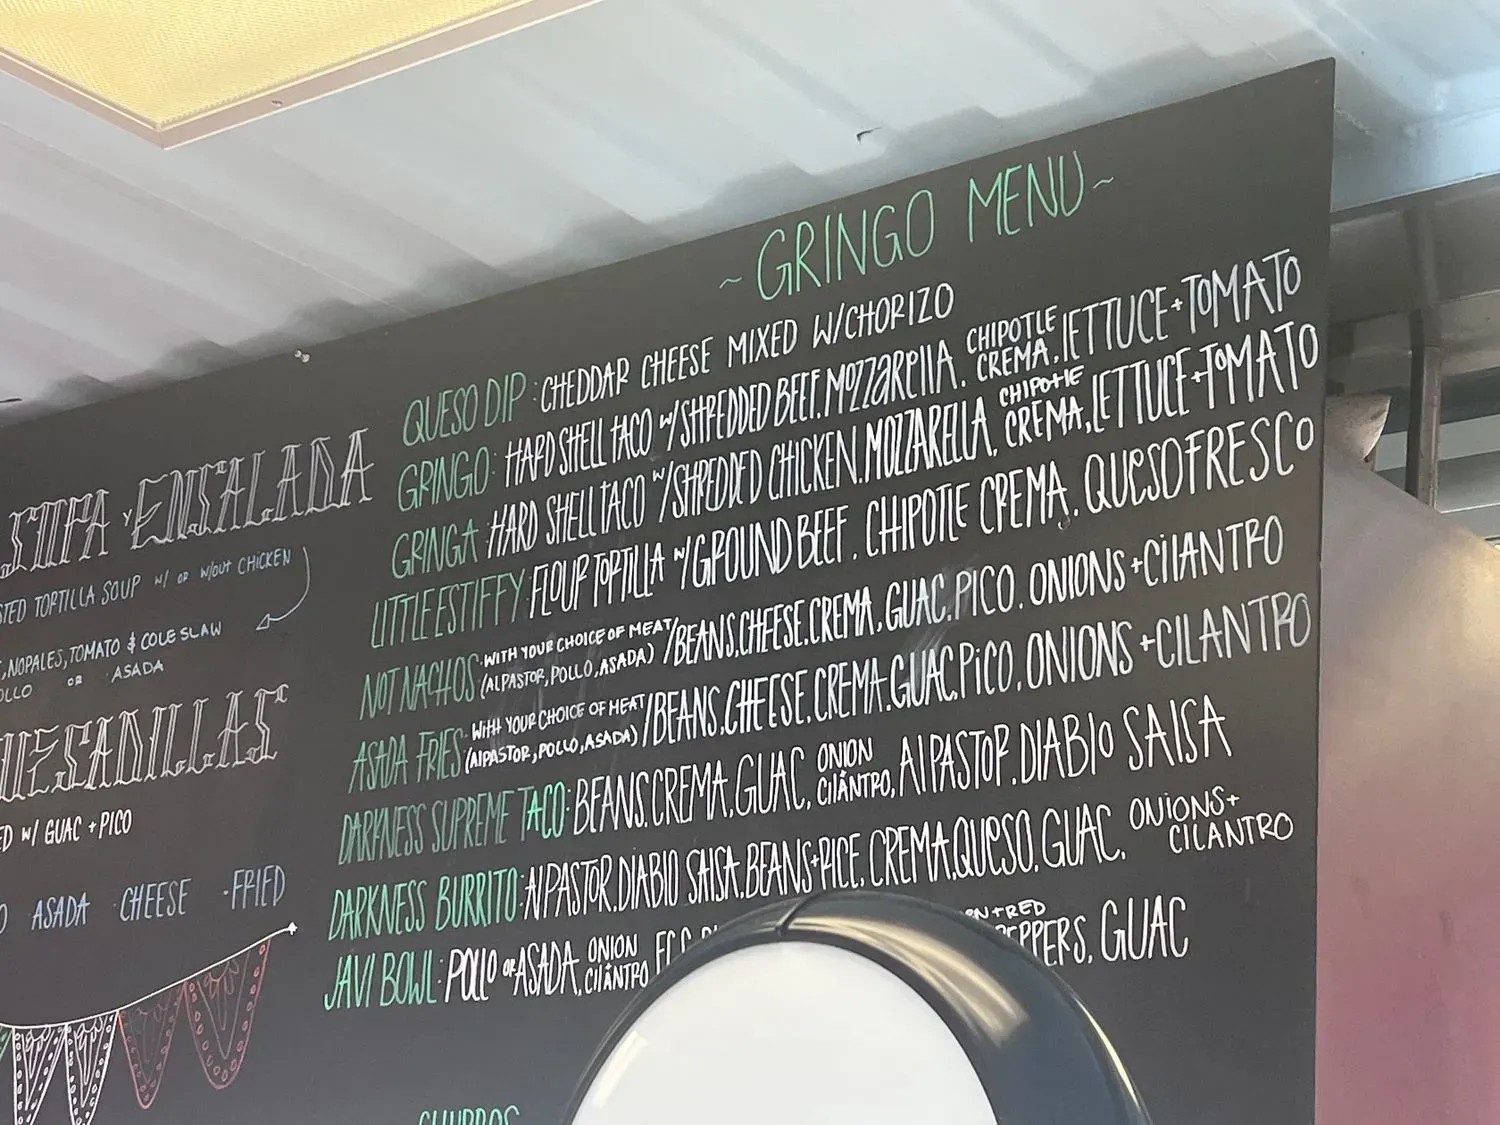 ~ GRINGO MENU ~
QUESO DIP: CHEDDAR CHEESE MIXED W/CHORIZO
GRINGO: HARD SHELL TACO W/SHREDDED BEEF, MOZZARELLA, CHIPOTLE CREMA, LETTUCE + TOMATO
GRINGA: HARD SHELL TACO W/SHREDDED CHICKEN, MOZZARELLA, CHIPOTLE CREMA, LETTUCE + TOMATO
LITTLE ESTIFFY: FLOUR TORTILLA W/GROUND BEEF, CHIPOTLE CREMA, QUESO FRESCO
NOT NACHOS: WITH YOUR CHOICE OF MEAT (AL PASTOR, POLLO, ASADA) /BEANS, CHEESE, CREMA, GUAC, PICO, ONIONS + CILANTRO
ASADA FRIES: WITH YOUR CHOICE OF MEAT (AL PASTOR, POLLO, ASADA) /BEANS, CHEESE, CREMA, GUAC, PICO, ONIONS + CILANTRO
DARKNESS SUPREME TACO: BEANS, CREMA, GUAC, ONION CILANTRO, AL PASTOR, DIABLO SALSA
DARKNESS BURRITO: AL PASTOR, DIABLO SALSA, BEANS + RICE, CREMA, QUESO, GUAC, ONIONS + CILANTRO
JAVI BOWL: POLLO OR ASADA, ONION CILANTRO, EGG + RED PEPPERS, GUAC
CHURROS
SOPA Y ENSALADA
TORTILLA SOUP W/ OR W/OUT CHICKEN
NOPALES, TOMATO & COLE SLAW
OR ASADA
QUESADILLAS
W/ GUAC + PICO
ASADA CHEESE • FRIED